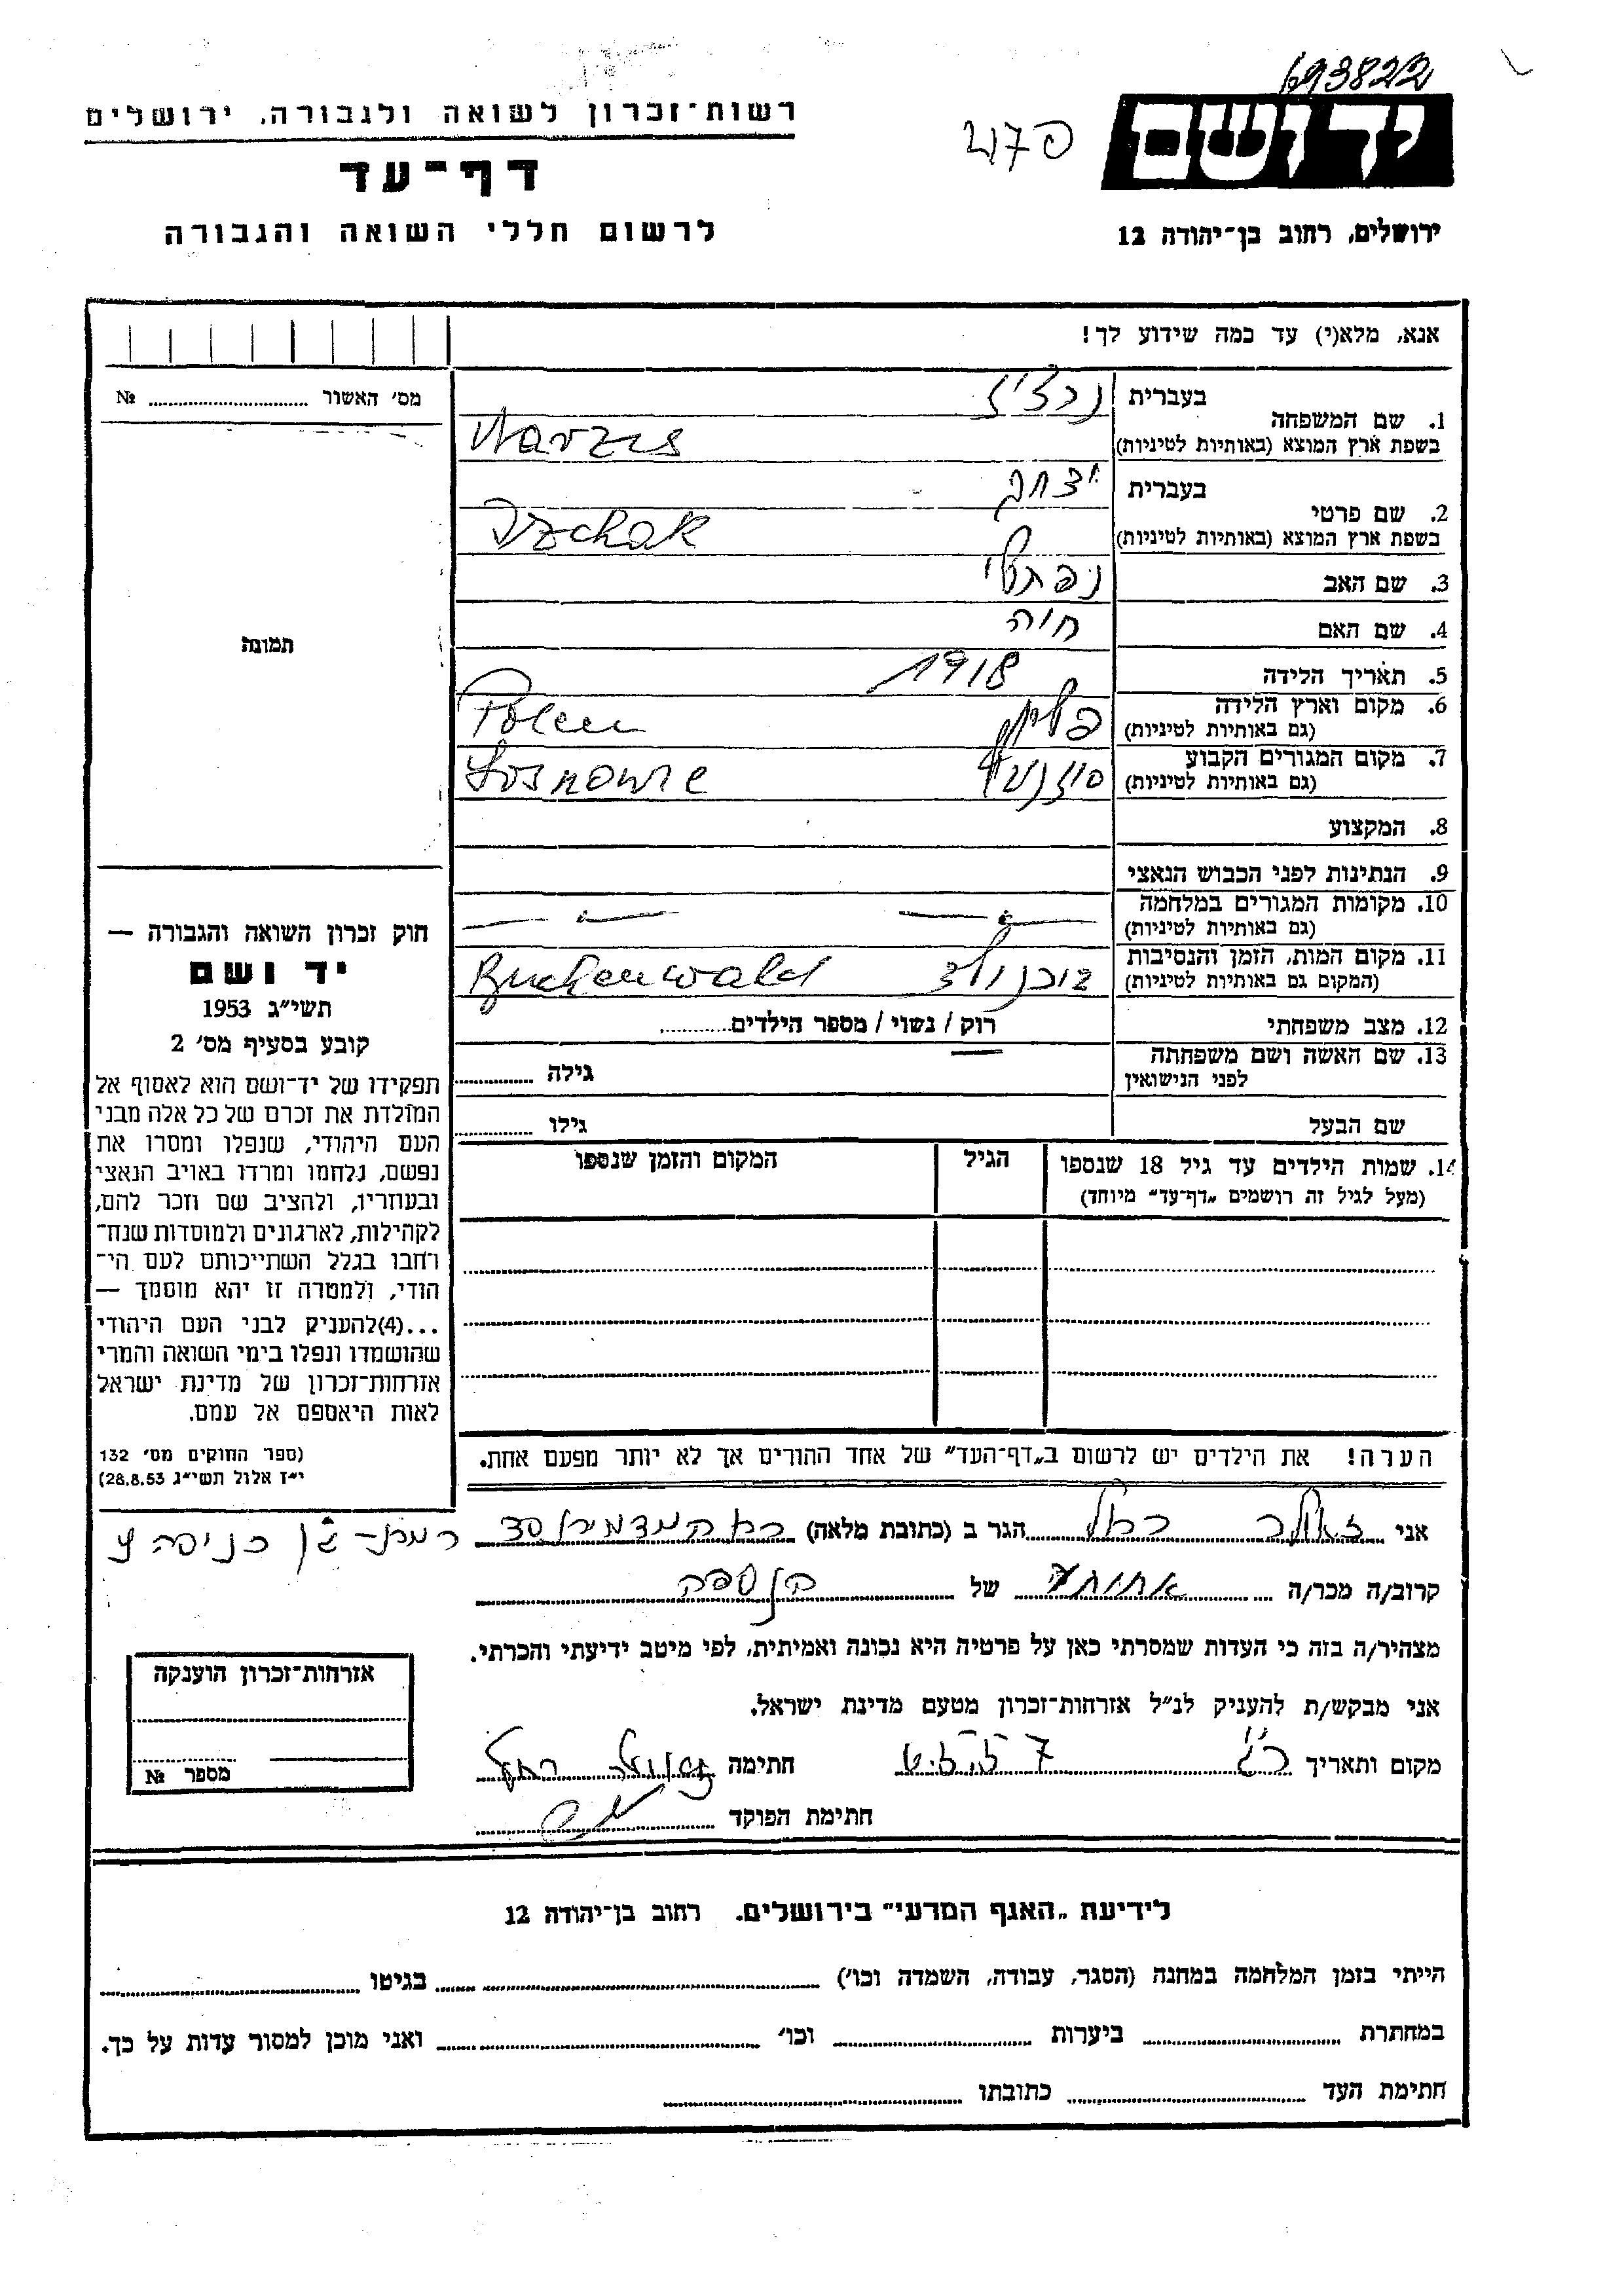 693822
רשות-זכרון לשואה ולגבורה, ירושלים
ידושם
דף-עד
לרשום חללי השואה והגבורה
ירושלים, רחוב בן-יהודה 12
אנא, מלא(י) עד כמה שידוע לך!
מס' האשור № 
1. שם המשפחה
בעברית
בשפת ארץ המוצא (באותיות לטיניות)
2. שם פרטי
בעברית יצחק
בשפת ארץ המוצא (באותיות לטיניות)
3. שם האב נפתלי
4. שם האם חוה
תמונה
5. תאריך הלידה 1918
6. מקום וארץ הלידה פולין Polen
(גם באותיות לטיניות)
7. מקום המגורים הקבוע
(גם באותיות לטיניות)
8. המקצוע
9. הנתינות לפני הכבוש הנאצי
10. מקומות המגורים במלחמה
(גם באותיות לטיניות)
11. מקום המות, הזמן והנסיבות Buchenwald
(המקום גם באותיות לטיניות)
12. מצב משפחתי רוק / נשוי / מספר הילדים
13. שם האשה ושם משפחתה גילה
לפני הנישואין
שם הבעל גילו
14. שמות הילדים עד גיל 18 שנספו הגיל המקום והזמן שנספו
(מעל לגיל זה רושמים „דף-עד" מיוחד)
חוק זכרון השואה והגבורה —
יד ושם
תשי"ג 1953
קובע בסעיף מס' 2
תפקידו של יד-ושם הוא לאסוף אל
המולדת את זכרם של כל אלה מבני
העם היהודי, שנפלו ומסרו את
נפשם, נלחמו ומרדו באויב הנאצי
ובעוזריו, ולהציב שם וזכר להם,
לקהילות, לארגונים ולמוסדות שנח-
רחבו בגלל השתייכותם לעם הי-
הודי, ולמטרה זו יהא מוסמך —
...(4)להעניק לבני העם היהודי
שהושמדו ונפלו בימי השואה והמרי
אזרחות-זכרון של מדינת ישראל
לאות היאספם אל עמם.
(ספר החוקים מס' 132
י"ז אלול תשי"ג 28.8.53)
הערה! את הילדים יש לרשום ב„דף-העד" של אחד ההורים אך לא יותר מפעם אחת.
אני הגר ב (כתובת מלאה)
קרוב/ה מכר/ה של הנספה
מצהיר/ה בזה כי העדות שמסרתי כאן על פרטיה היא נכונה ואמיתית, לפי מיטב ידיעתי והכרתי.
אני מבקש/ת להעניק לנ"ל אזרחות-זכרון מטעם מדינת ישראל.
מקום ותאריך חתימה
חתימת הפוקד
אזרחות-זכרון הוענקה
מספר №
לידיעת „האגף המדעי" בירושלים. רחוב בן-יהודה 12
הייתי בזמן המלחמה במחנה (הסגר, עבודה, השמדה וכו') בגיטו
במחתרת ביערות וכו' ואני מוכן למסור עדות על כך.
חתימת העד כתובתו